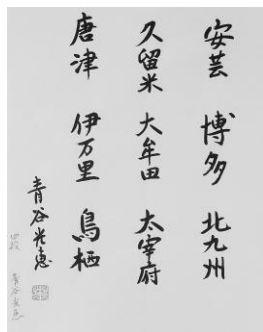 安芸 博多 北九州
久留米 大牟田 太宰府
唐津 伊万里 鳥栖
青谷光急
四段